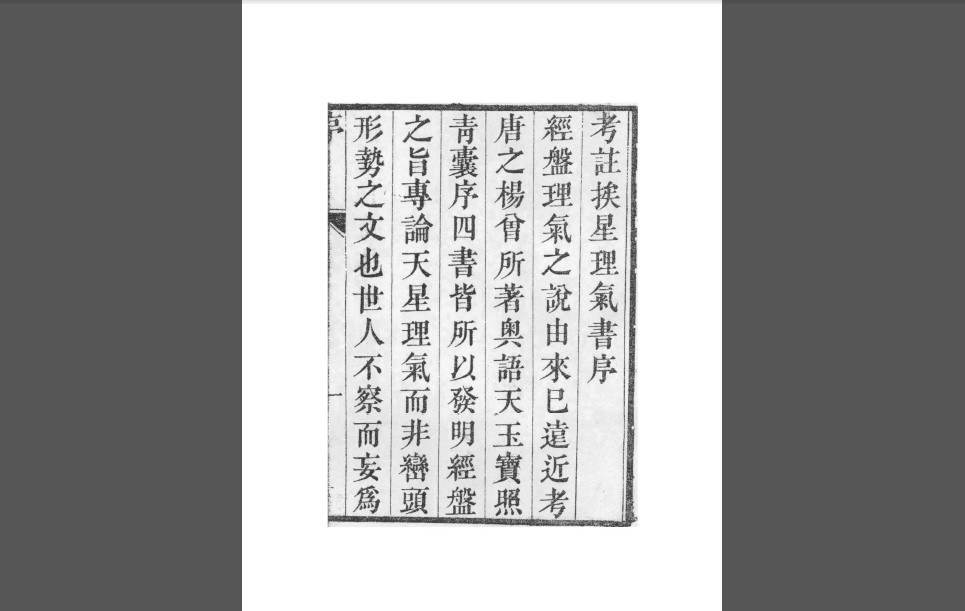 考註挨星理氣書序
經盤理氣之說由來已遠近考
唐之楊曾所著奥語天玉寶照
青囊序四書皆所以發明經盤
之旨專論天星理氣而非巒頭
形勢之文也世人不察而妄爲
序
一